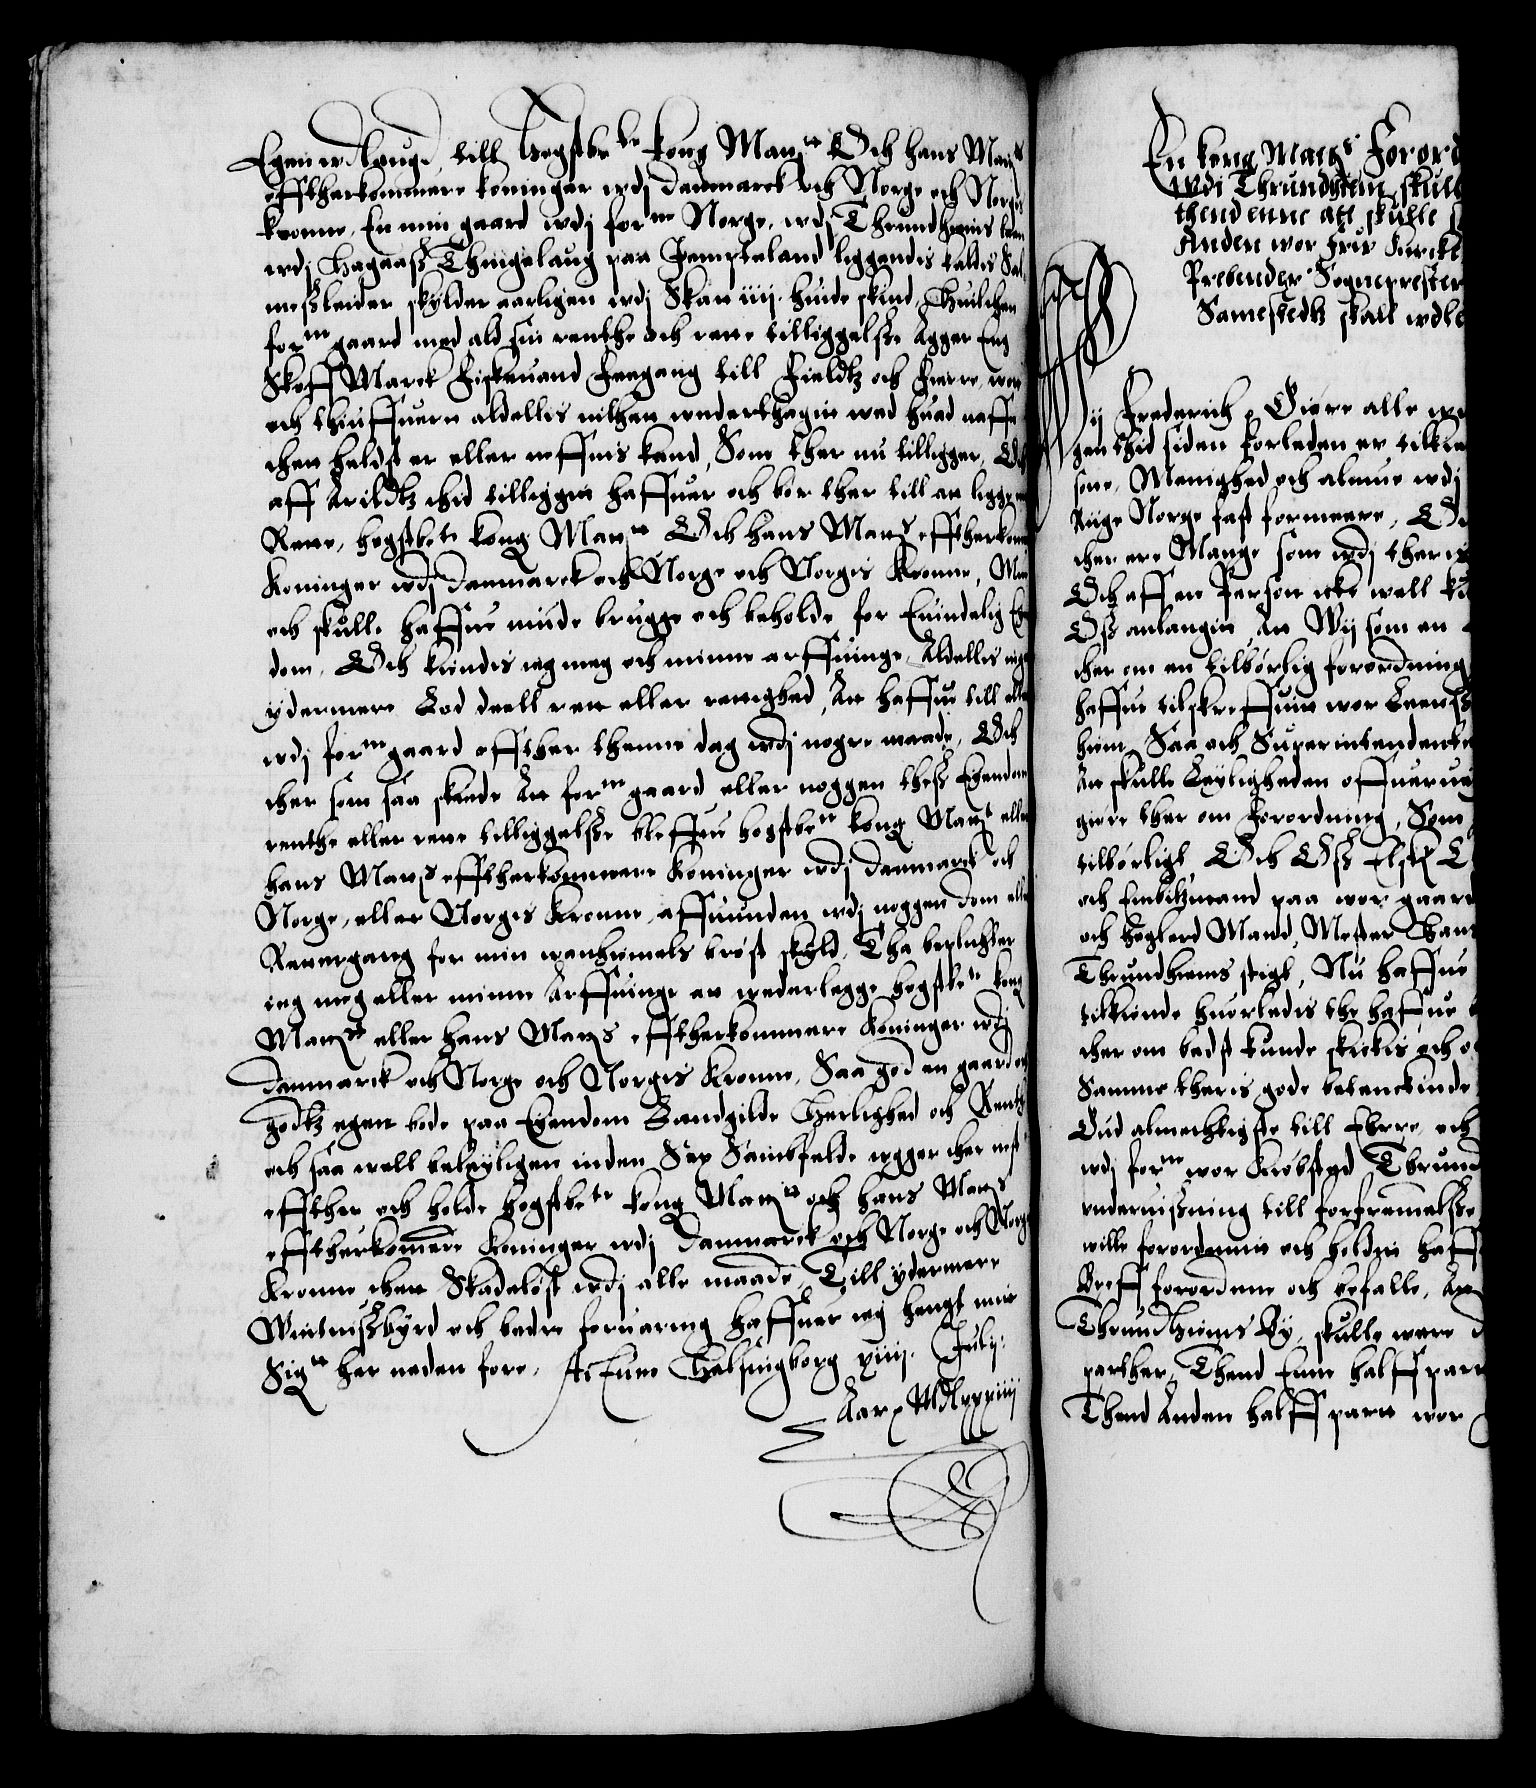 Egen wdlaugd, till Hogstbete kong Maytt Och hans Mays
effterkommere koninger wdj Danmarck och Norge och Norgis
kronne, En min gaard wdj forne Norge, wdj Thrundhiems leen
wdj Hagaass Thingelaug paa Jempteland liggendis kaldis
skylder aarligen wdj Skau iiij. huide skind, Huilchen
forne gaard med ald sin renthe och rette tilliggelsse Agger Eng
Skoff Marck Fiskeuand Feegang till Fieldtz och Fierre, wott
och thiuffuert aldelis inthet wnderthagit wed huad naffn
thet heldst er eller neffnis kand, Som ther nu tilligger, Och
aff Arildtz thid tilligget haffuer och bør ther till at ligge mett
Rette, hogstbete kong Maytt Och hans Mays effterkomme
Koninger wdj Danmarck och Norge och Norgis Kronne, Mue
och skulle haffue niude brugge och beholde for Euindelig Eyen
dom, Och kiendis ieg meg och minne arffuinge Aldelis ingen
ydermere Lod deell rett eller rettighed, At haffue till eller
wdj forne gaard effther thenne dag wdj nogre maade, Och
ther som saa skede At forne gaard eller noggen thess Eyendom
renthe eller rette tilliggelsse bleffue hogstbete kong Maytt eller
hans Mays effterkommere Koninger wdj Danmarck och
Norge, eller Norgis Kronne affuunden wdj noggen dom eller
Rettergang for min wanhiemels brøst skyld, Tha beplichter
ieg meg eller minne Arffuinge at wederlegge hogstbete kong
Maytt eller hans Mays effterkommere Koninger wdj
Danmarck och Norge och Norgis Kronne, Saa god en gaard och
godtz igen bode paa Eyendom Landgilde Herlighed och Renthe
och saa well beleyligen inden Sex Samfelde wgger ther nest
effther och holde hogstbete kong Maytt och hans Mays
effterkommere Koninger wdj Danmarck och Norge och Norgis
Kronne thet Skadeløst wdj alle maade, Till ydermere
Widnissbyrd och bedre foruaring haffuer ieg hengt mit
Sigte her neden fore, Actum Helsingborg xiiij. Julij.
Aar &c Mdlxxxiiij
En kong Mays Forord
wdi Thrundhiem, skull
thend enne att skulle
Anden wor frue kircke
Prebender Sogneprester
Samestedtz skall wdl
Wij Frederich &c Giøre alle wi
gen thid siden forleden er tilkien
sone, Menighed och almue wdj
Riige Norge fast formeere, Och
ther ere Mange som wdj theris
Och aff en Person icke well ku
Oss anlangit, At Wij som en
ther om en tilbørlig forordning
haffue tilskreffuit wor Leens
hiem, Saa och Superintendenten
At skulle Leyligheden offuerue
giøre ther om forordning, Som
tilbørligt, Och Oss Elskl
och Embitzmand paa wor gaard
och høglerd Mand, Mester Hans
Thrundhiems stigt, Nu haffue
tilkiende huorledis the haffue
ther om bedst kunde skickis och
Samme theris gode betenckinde
Gud almechtigste till Ehre, och
wdj forne wor Kiøbsted Thrund
vnderuissning till forfremelsse
wille forordennit och holdit haff
Breff forordnne och befalle, At
Thrundhiems By, skulle were
parther, Thend Enne halff part
Thend Anden halff part wor